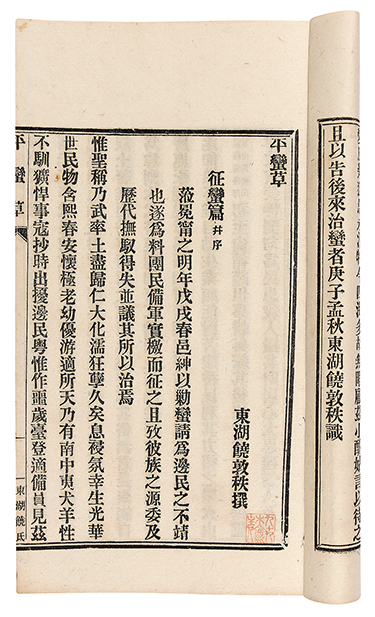 且以告後來治蠻者庚子孟秋東湖饒敦秩識
平蠻草
東湖饒敦秩撰
征蠻篇 并序
蒞冕甯之明年戊戌春邑紳以勦蠻請為邊民之不靖
也遂為料團民備軍實檄而征之且攷彼族之源委及
歷代撫馭得失並議其所以治焉
惟聖稱乃武率土盡歸仁大化濡狂孽久矣息祲氛幸生光華
世民物含熙春安懷極老幼優游適所天乃有南中夷犬羊性
不馴獷悍事寇抄時出擾邊民粵惟作噩歲臺登適備員見茲
平蠻草
東湖饒氏